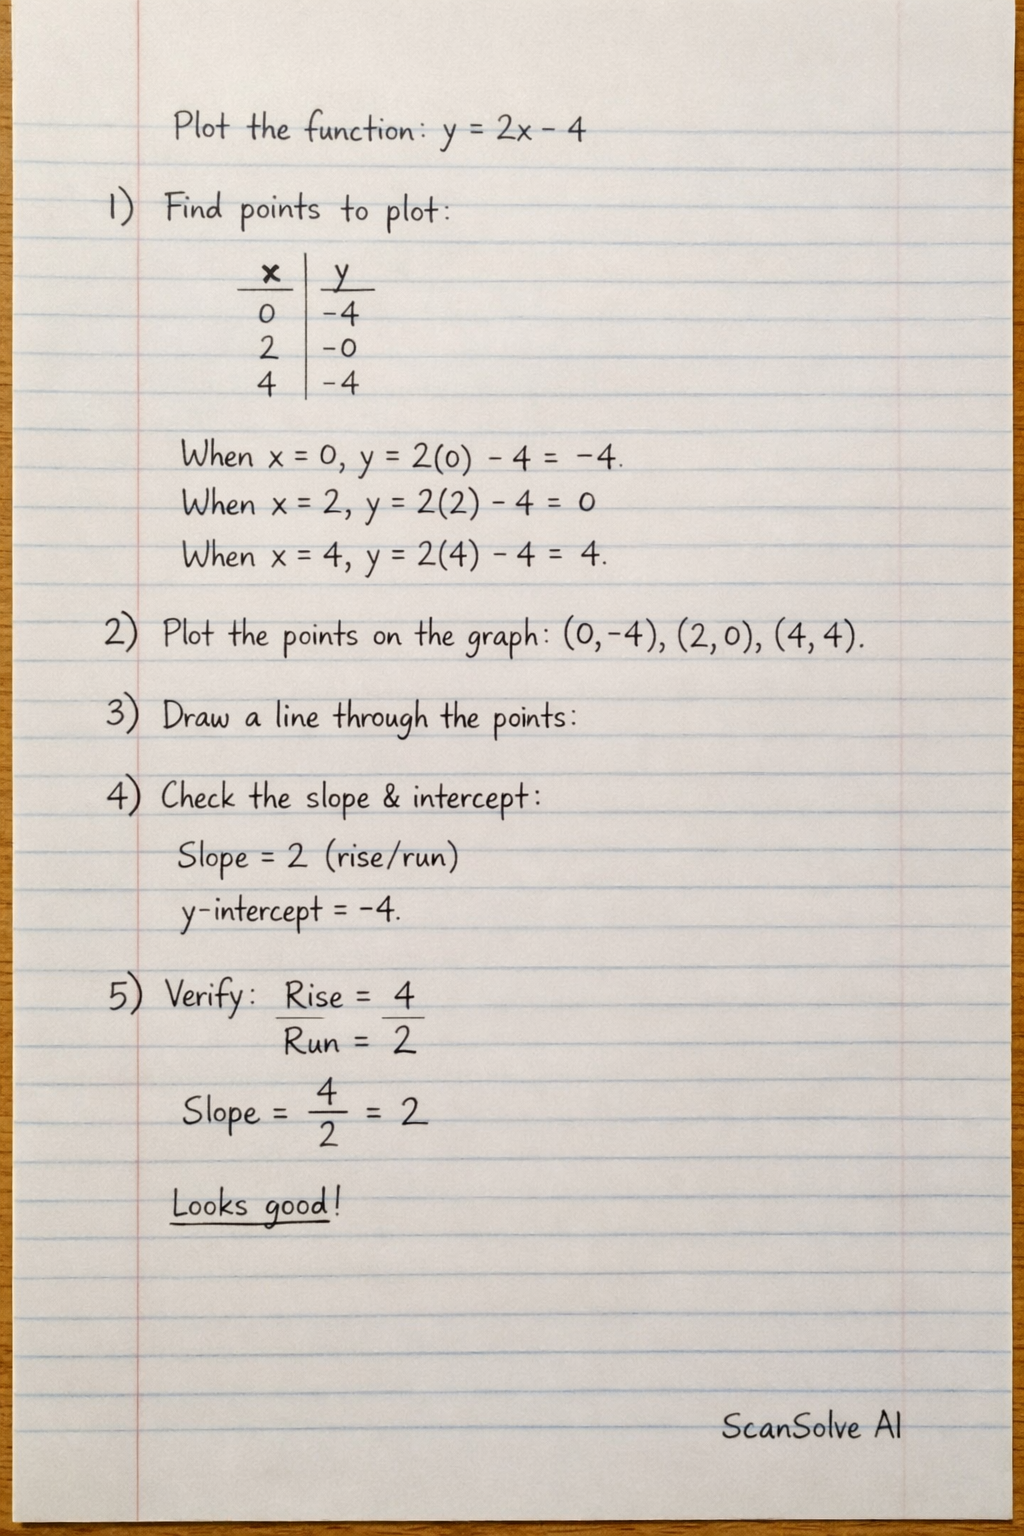 Plot the function: y = 2x - 4
1) Find points to plot:
x | y
0 | -4
2 | -0
4 | -4
When x = 0, y = 2(0) - 4 = -4.
When x = 2, y = 2(2) - 4 = 0
When x = 4, y = 2(4) - 4 = 4.
2) Plot the points on the graph: (0,-4), (2,0), (4,4).
3) Draw a line through the points:
4) Check the slope & intercept:
Slope = 2 (rise/run)
y-intercept = -4.
5) Verify: Rise = 4
Run = 2
Slope = 4/2 = 2
Looks good!
ScanSolve AI